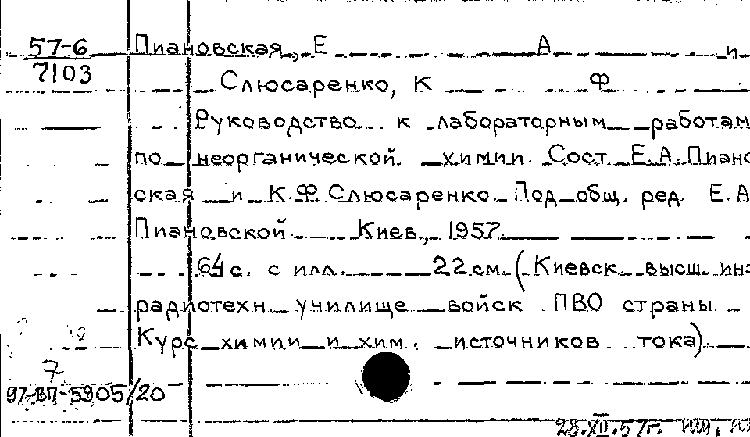 57-6 Пиановская, Е А и
7103 Слюсаренко, К Ф
Руководство к лабораторным работам
по неорганической химии Сост. Е.А.Пианов
ская и К.Ф.Слюсаренко Под общ. ред. Е.А
Пиановской Киев, 1957.
64с. с илл. 22см. (Киевск высш инж
радиотехн училище войск ПВО страны
Курс химии и хим. источников тока)
7
97-ВП-5905/20
28.XII.57г.